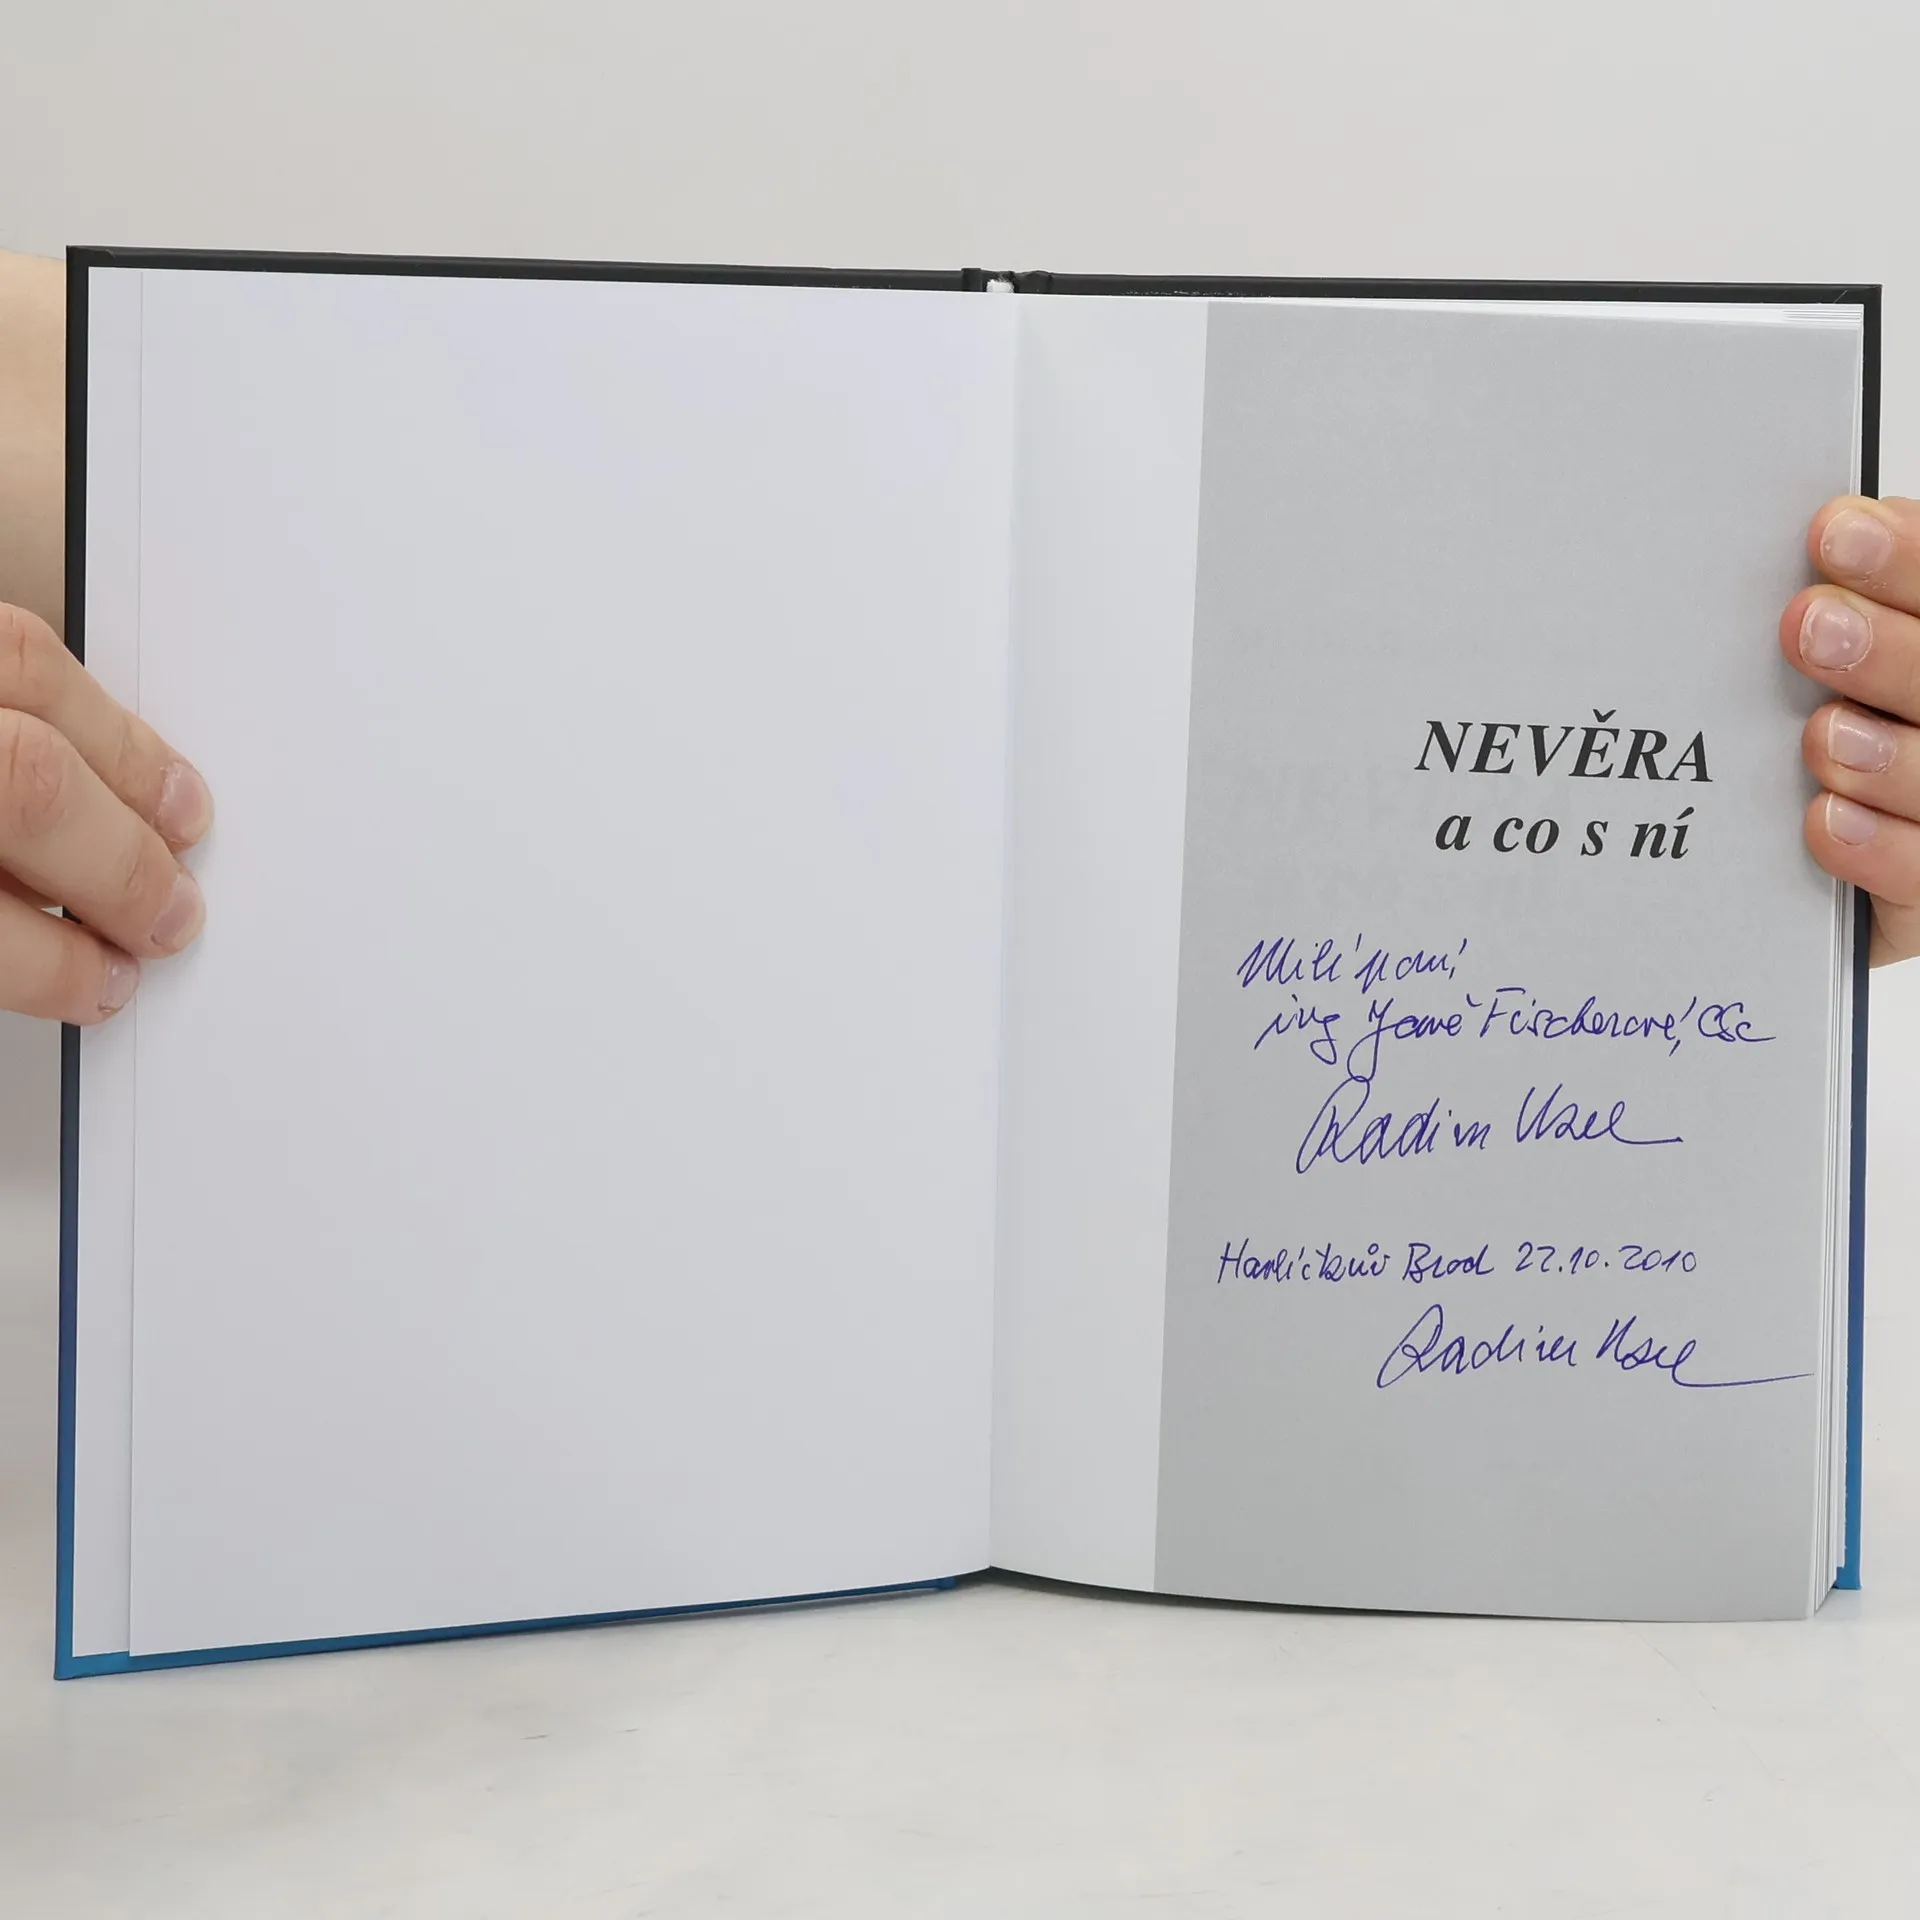 NEVĚRA
a co s ní
Milé paní
ing Janě Fischerové, CSc
Radim Uzel
Havlíčkův Brod 22.10.2010
Radim Uzel